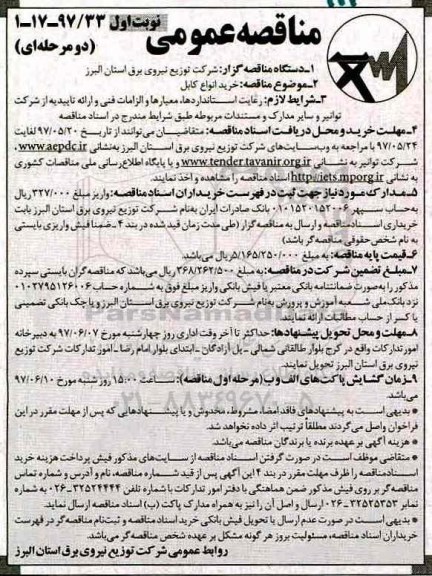 مناقصه عمومی
نوبت اول ۹۷/۳۳-۱۷-۱
(دو مرحله‌ای)
۱-دستگاه مناقصه گزار: شرکت توزیع نیروی برق استان البرز
۲-موضوع مناقصه: خرید انواع کابل
۳-شرایط لازم: رعایت استانداردها، معیارها و الزامات فنی و ارائه تاییدیه از شرکت
توانیر و سایر مدارک و مستندات مربوطه طبق شرایط مندرج در اسناد مناقصه
۴-مهلت خرید و محل دریافت اسناد مناقصه: متقاضیان می‌توانند از تاریخ ۹۷/۰۵/۲۰ لغایت
۹۷/۰۵/۲۴ با مراجعه به وب‌سایت‌های شرکت توزیع نیروی برق استان البرز به‌نشانی www.aepdc.ir،
شرکت توانیر به نشانی www.tender.tavanir.org.ir و یا پایگاه اطلاع‌رسانی ملی مناقصات کشوری
به نشانی http://iets.mporg.ir اسناد مناقصه را مشاهده و اخذ نمایند.
۵-مدارک مورد نیاز جهت ثبت در فهرست خریداران اسناد مناقصه: واریز مبلغ ۳۲۷/۰۰۰ ریال
به‌حساب سپهر ۰۱۰۱۵۲۰۱۵۲۰۰۶ بانک صادرات ایران به‌نام شرکت توزیع نیروی برق استان البرز بابت
خریداری اسناد مناقصه و ارسال به مناقصه گزار (طی مدت زمان قید شده در بند ۴-ضمنا فیش واریزی بایستی
به نام شخص حقوقی مناقصه‌گر باشد)
۶-قیمت پایه مناقصه: به مبلغ ۵/۱۶۵/۲۵۰/۰۰۰ ریال می‌باشد.
۷-مبلغ تضمین شرکت در مناقصه: به مبلغ ۲۶۸/۲۶۲/۵۰۰ ریال می‌باشد که مناقصه گران بایستی سپرده
مذکور را به‌صورت ضمانتنامه بانکی معتبر یا فیش بانکی واریز مبلغ فوق به شماره حساب ۰۱۰۲۷۹۵۱۲۶۰۰۶
نزد بانک ملی شعبه آموزش و پرورش به‌نام شرکت توزیع نیروی برق استان البرز و یا چک بانکی تضمینی
یا کسر از حساب مطالبات ارائه نمایند.
۸-مهلت و محل تحویل پیشنهادها: حداکثر تا آخر وقت اداری روز چهارشنبه مورخ ۹۷/۰۶/۰۷ به دبیرخانه
امور تدارکات واقع در کرج بلوار طالقانی شمالی -پل آزادگان -ابتدای بلوار امام رضا -امور تدارکات شرکت توزیع
نیروی برق استان البرز تحویل نمایند.
۹-زمان گشایش پاکت‌های الف و ب (مرحله اول مناقصه): ساعت ۱۵:۰۰ روز شنبه مورخ ۹۷/۰۶/۱۰
می‌باشد.
* بدیهی است به پیشنهادهای فاقد امضا، مشروط، مخدوش و یا پیشنهادهایی که پس از مهلت مقرر در این
فراخوان واصل می‌گردند مطلقا ترتیب اثر داده نخواهد شد.
* هزینه آگهی بر عهده برنده یا برندگان مناقصه می‌باشد.
* متقاضی موظف است در صورت گرفتن اسناد مناقصه از سایت‌های مذکور فیش پرداخت هزینه خرید
اسناد مناقصه را ظرف مهلت مقرر در بند ۴ این آگهی پس از قید شماره مناقصه، نام و آدرس و شماره تماس
مناقصه‌گر بر روی فیش مذکور ضمن هماهنگی با دفتر امور تدارکات با شماره تلفن ۳۲۵۲۴۴۴۴-۰۲۶ به شماره
نمابر ۳۲۵۲۵۳۵۳-۰۲۶ ارسال و اصل آن را نیز به همراه مدارک پاکت (ب) اسناد مناقصه ارسال نماید.
* بدیهی است در صورت عدم ارسال یا تحویل فیش بانکی خرید اسناد مناقصه و ثبت‌نام مناقصه‌گر در فهرست
خریداران اسناد مناقصه، مسئولیت بروز هر گونه مشکل بر عهده شخص مناقصه‌گر می‌باشد.
روابط عمومی شرکت توزیع نیروی برق استان البرز
ParsNamad
۰۲۱-۸۸۳۴۹۶۷۰-۵